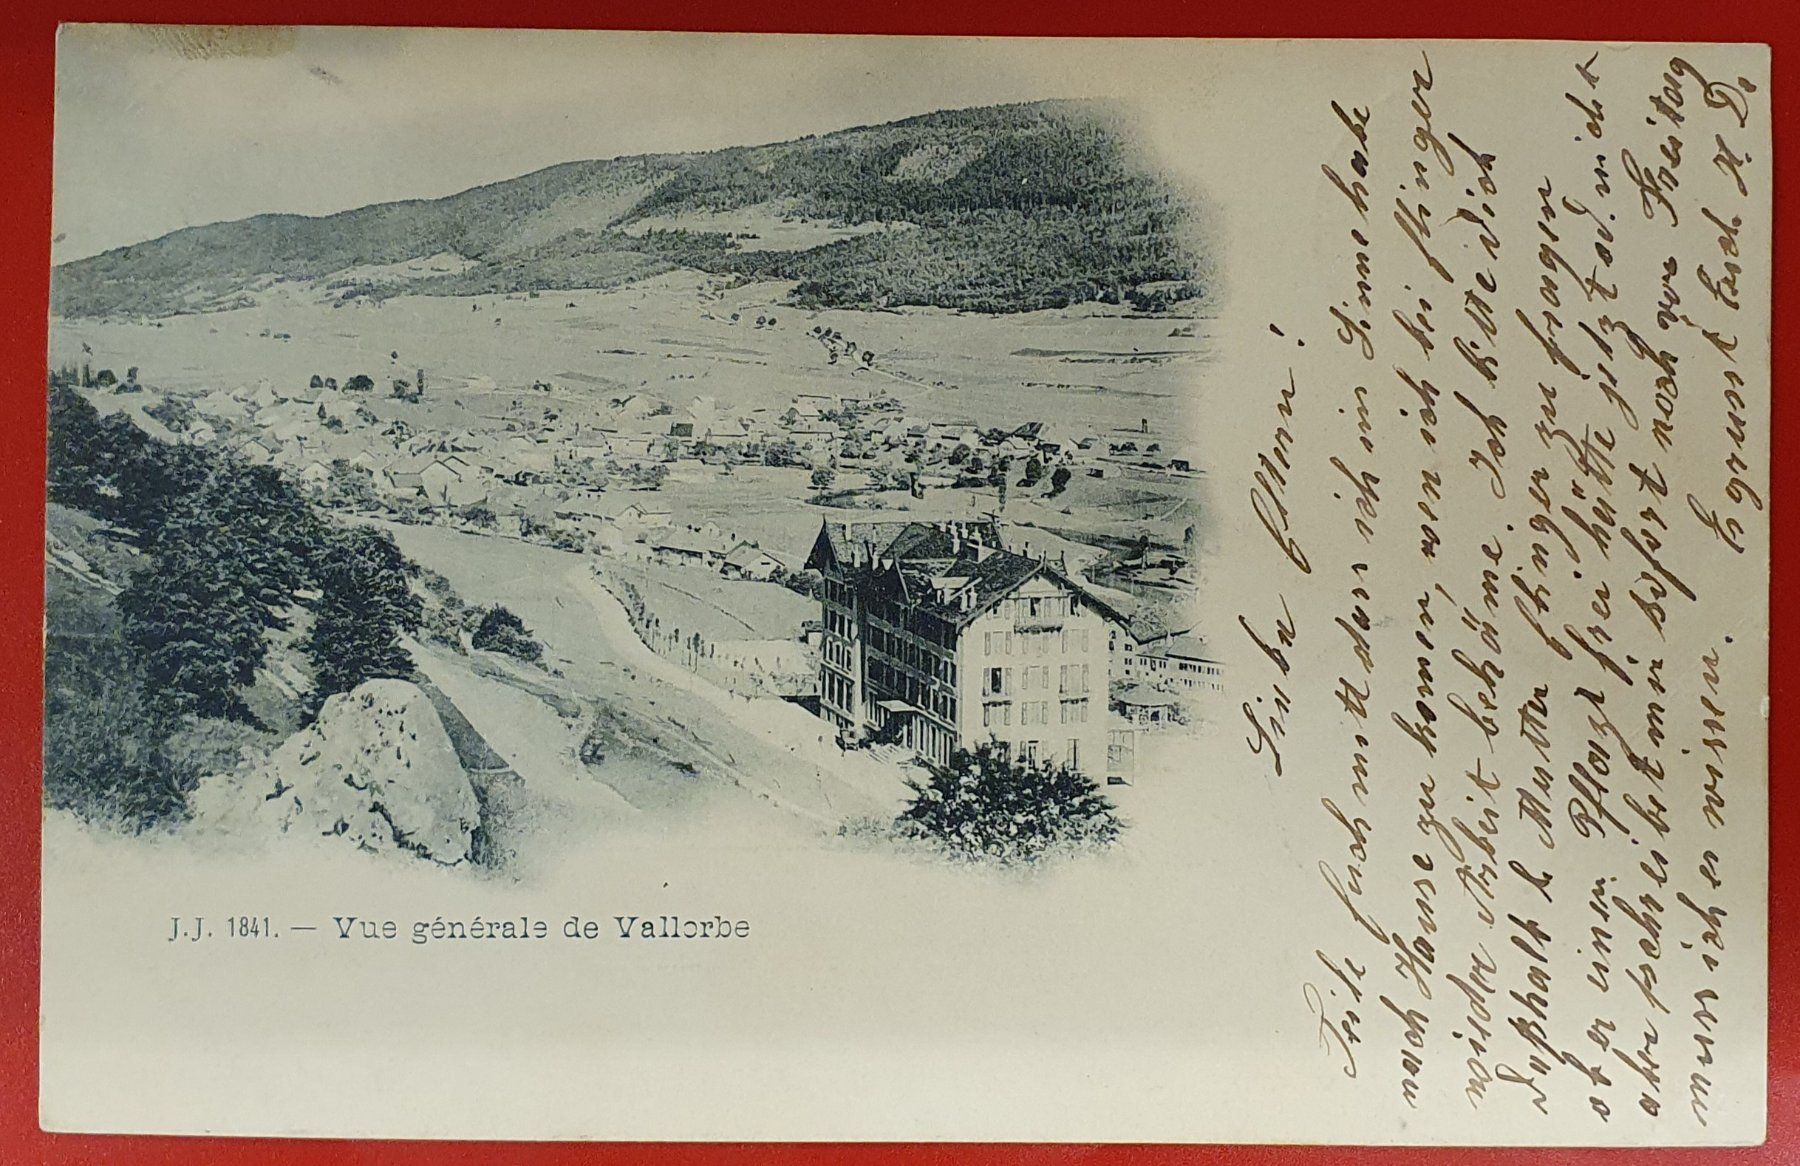 J.J. 1841. — Vue générale de Vallorbe
Liebe Eltern!
Teile Euch mitt dass ich im Sinne habe
nach Hause zu kommen, wen ich bis
wieder Arbeit bekäme. Ich bitte dich
desshalb l. Mutter zu fragen
ob er einen Platz frei hätte jetzt od. nicht
aber schreibet mir sofort noch vor Freitag
muss ich es wissen.
Es grüsst Euch